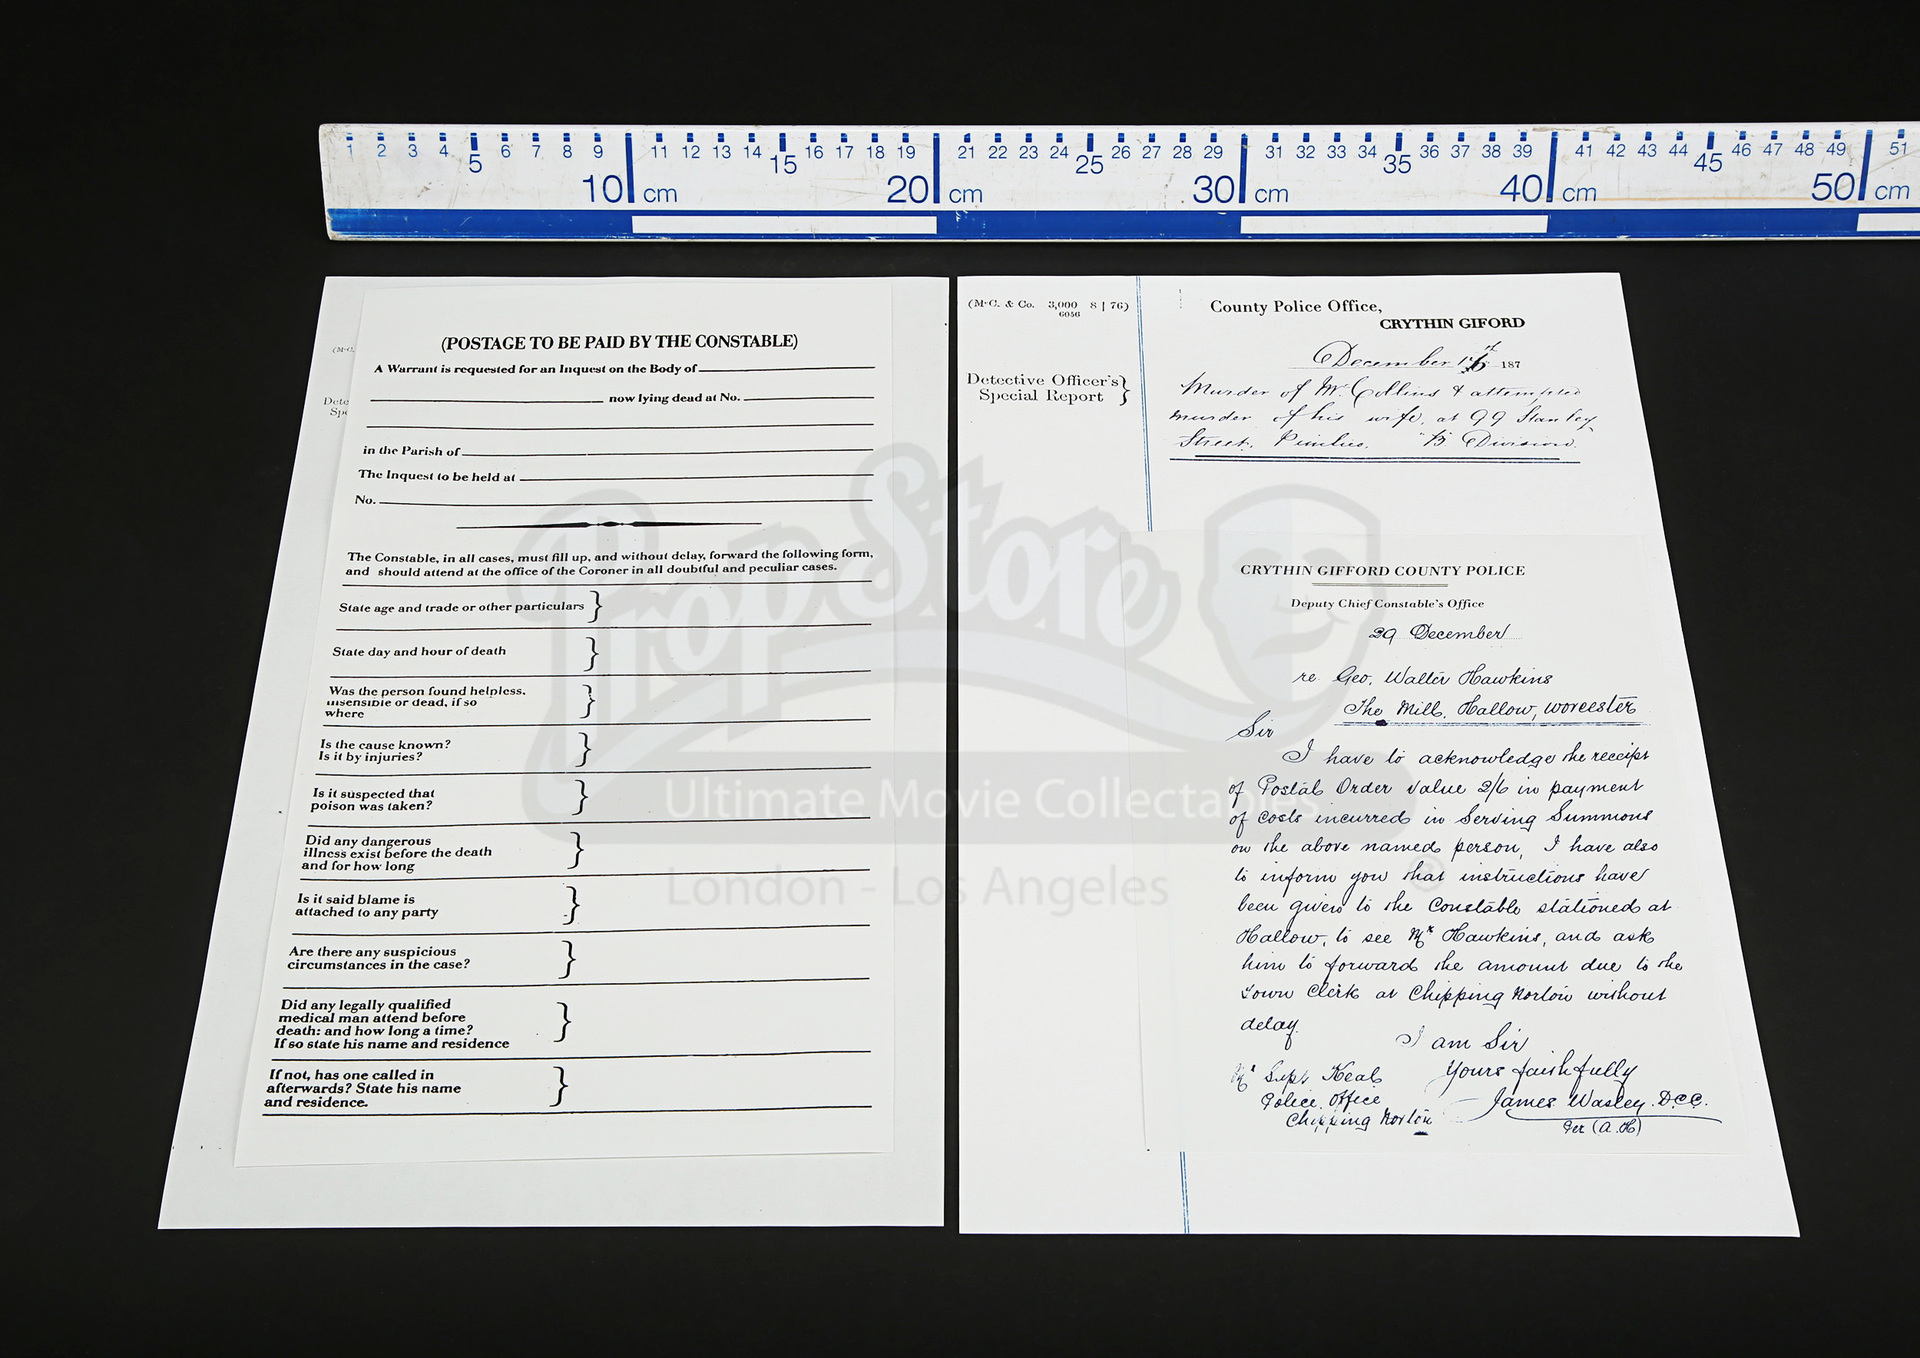 1 2 3 4 5 6 7 8 9 10 cm 11 12 13 14 15 16 17 18 19 20 cm 21 22 23 24 25 26 27 28 29 30 cm 31 32 33 34 35 36 37 38 39 40 cm 41 42 43 44 45 46 47 48 49 50 cm 51
(M·C.
Dete
Spe
(POSTAGE TO BE PAID BY THE CONSTABLE)
A Warrant is requested for an Inquest on the Body of
now lying dead at No.
in the Parish of
The Inquest to be held at
No.
The Constable, in all cases, must fill up, and without delay, forward the following form,
and should attend at the office of the Coroner in all doubtful and peculiar cases.
State age and trade or other particulars }
State day and hour of death }
Was the person found helpless,
insensible or dead, if so
where }
Is the cause known?
Is it by injuries? }
Is it suspected that
poison was taken? }
Did any dangerous
illness exist before the death
and for how long }
Is it said blame is
attached to any party }
Are there any suspicious
circumstances in the case? }
Did any legally qualified
medical man attend before
death: and how long a time?
If so state his name and residence }
If not, has one called in
afterwards? State his name
and residence. }
(M·C. & Co. 3,000 8 | 76)
6056
Detective Officer's
Special Report }
County Police Office,
CRYTHIN GIFORD
December 187
Murder of Mr. Collins & attempted
murder of his wife, at 99 Stanley
Street, Pimlico. "B" Division.
CRYTHIN GIFFORD COUNTY POLICE
Deputy Chief Constable's Office
29 December
re Geo, Walter Hawkins
The Mill, Hallow, Worcester
Sir
I have to acknowledge the receipt
of Postal Order value 2/6 in payment
of costs incurred in Serving Summons
on the above named person, I have also
to inform you that instructions have
been given to the Constable stationed at
Hallow, to see Mr Hawkins, and ask
him to forward the amount due to the
Town Clerk at Chipping Norton without
delay.
I am Sir
Yours faithfully
James Wasley. D.C.C.
Per (A. H)
Mr Supt Keal
Police Office
Chipping Norton
Prop Store
Ultimate Movie Collectables
London - Los Angeles
®